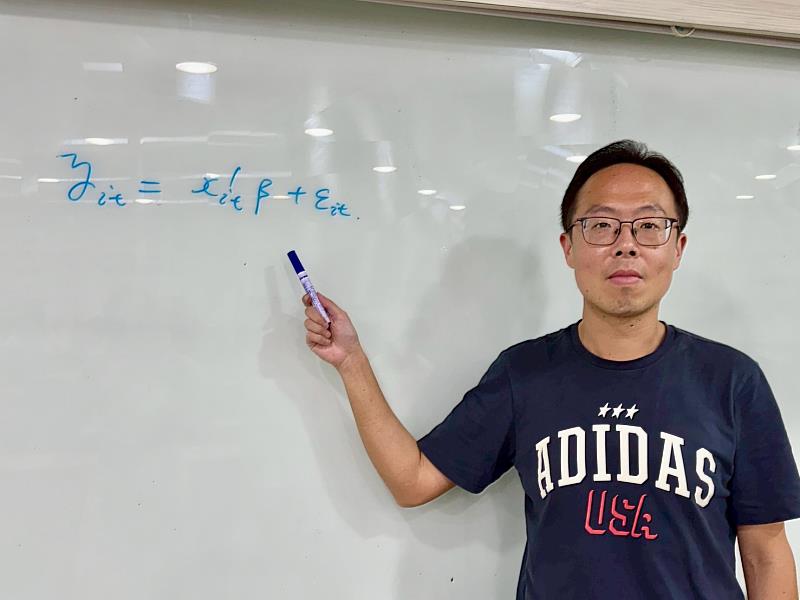 y_{it} = x'_{it} β + ε_{it}.
★★★
ADIDAS
USA